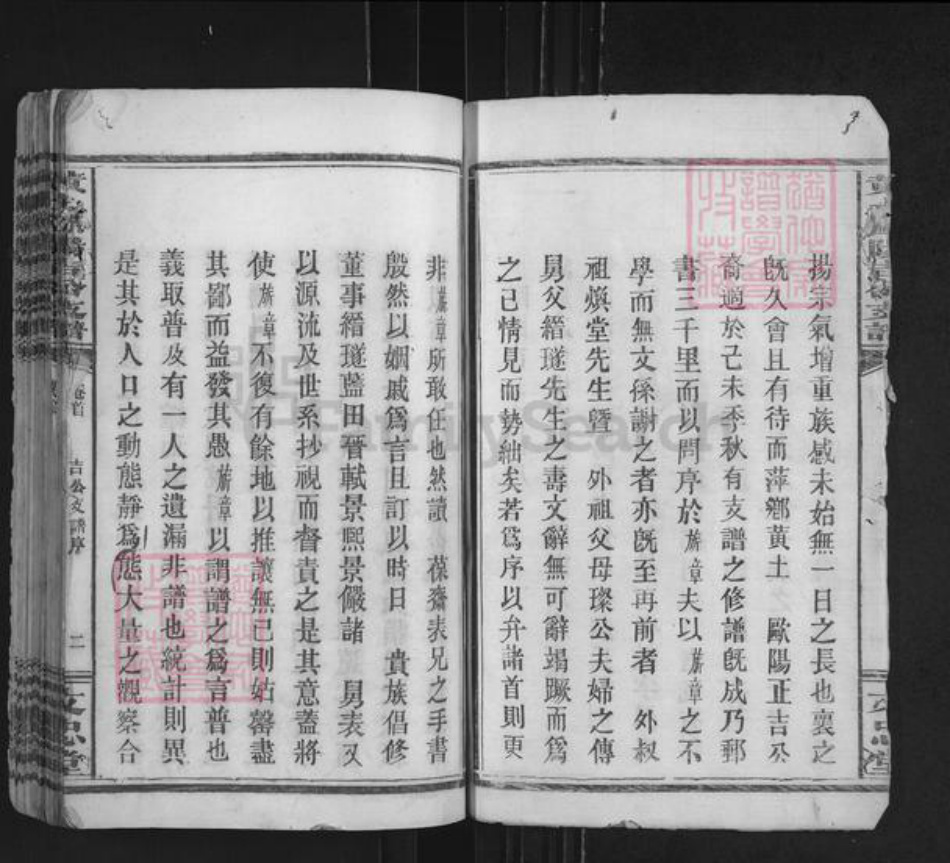 揚宗氣增重族感未始無一日之長也襄之
旣久會且有待而萍鄉黃土 歐陽正吉公
裔適於己未季秋有支譜之修譜旣成乃郵
書三千里而以問序於 章夫以 章之不
學而無文孫謝之者亦旣至再前者 外叔
祖煥堂先生曁 外祖父母璨公夫婦之傳
舅父縉璲先生之壽文辭無可辭竭蹶而爲
之已情見而勢絀矣若爲序以弁諸首則更
非 章所敢任也然讀 葆齋表兄之手書
殷然以姻戚爲言且訂以時日 貴族倡修
董事縉璲藍田晉軾景熙景儼諸 舅表又
以源流及世系抄視而督責之是其意蓋將
使 章不復有餘地以推讓無已則姑罄盡
其鄙而益發其愚 章以謂譜之爲言普也
義取普及有一人之遺漏非譜也統計則異
是其於人口之動態靜爲態大量之觀察合
卷首
吉公支譜序
二
FamilySearch